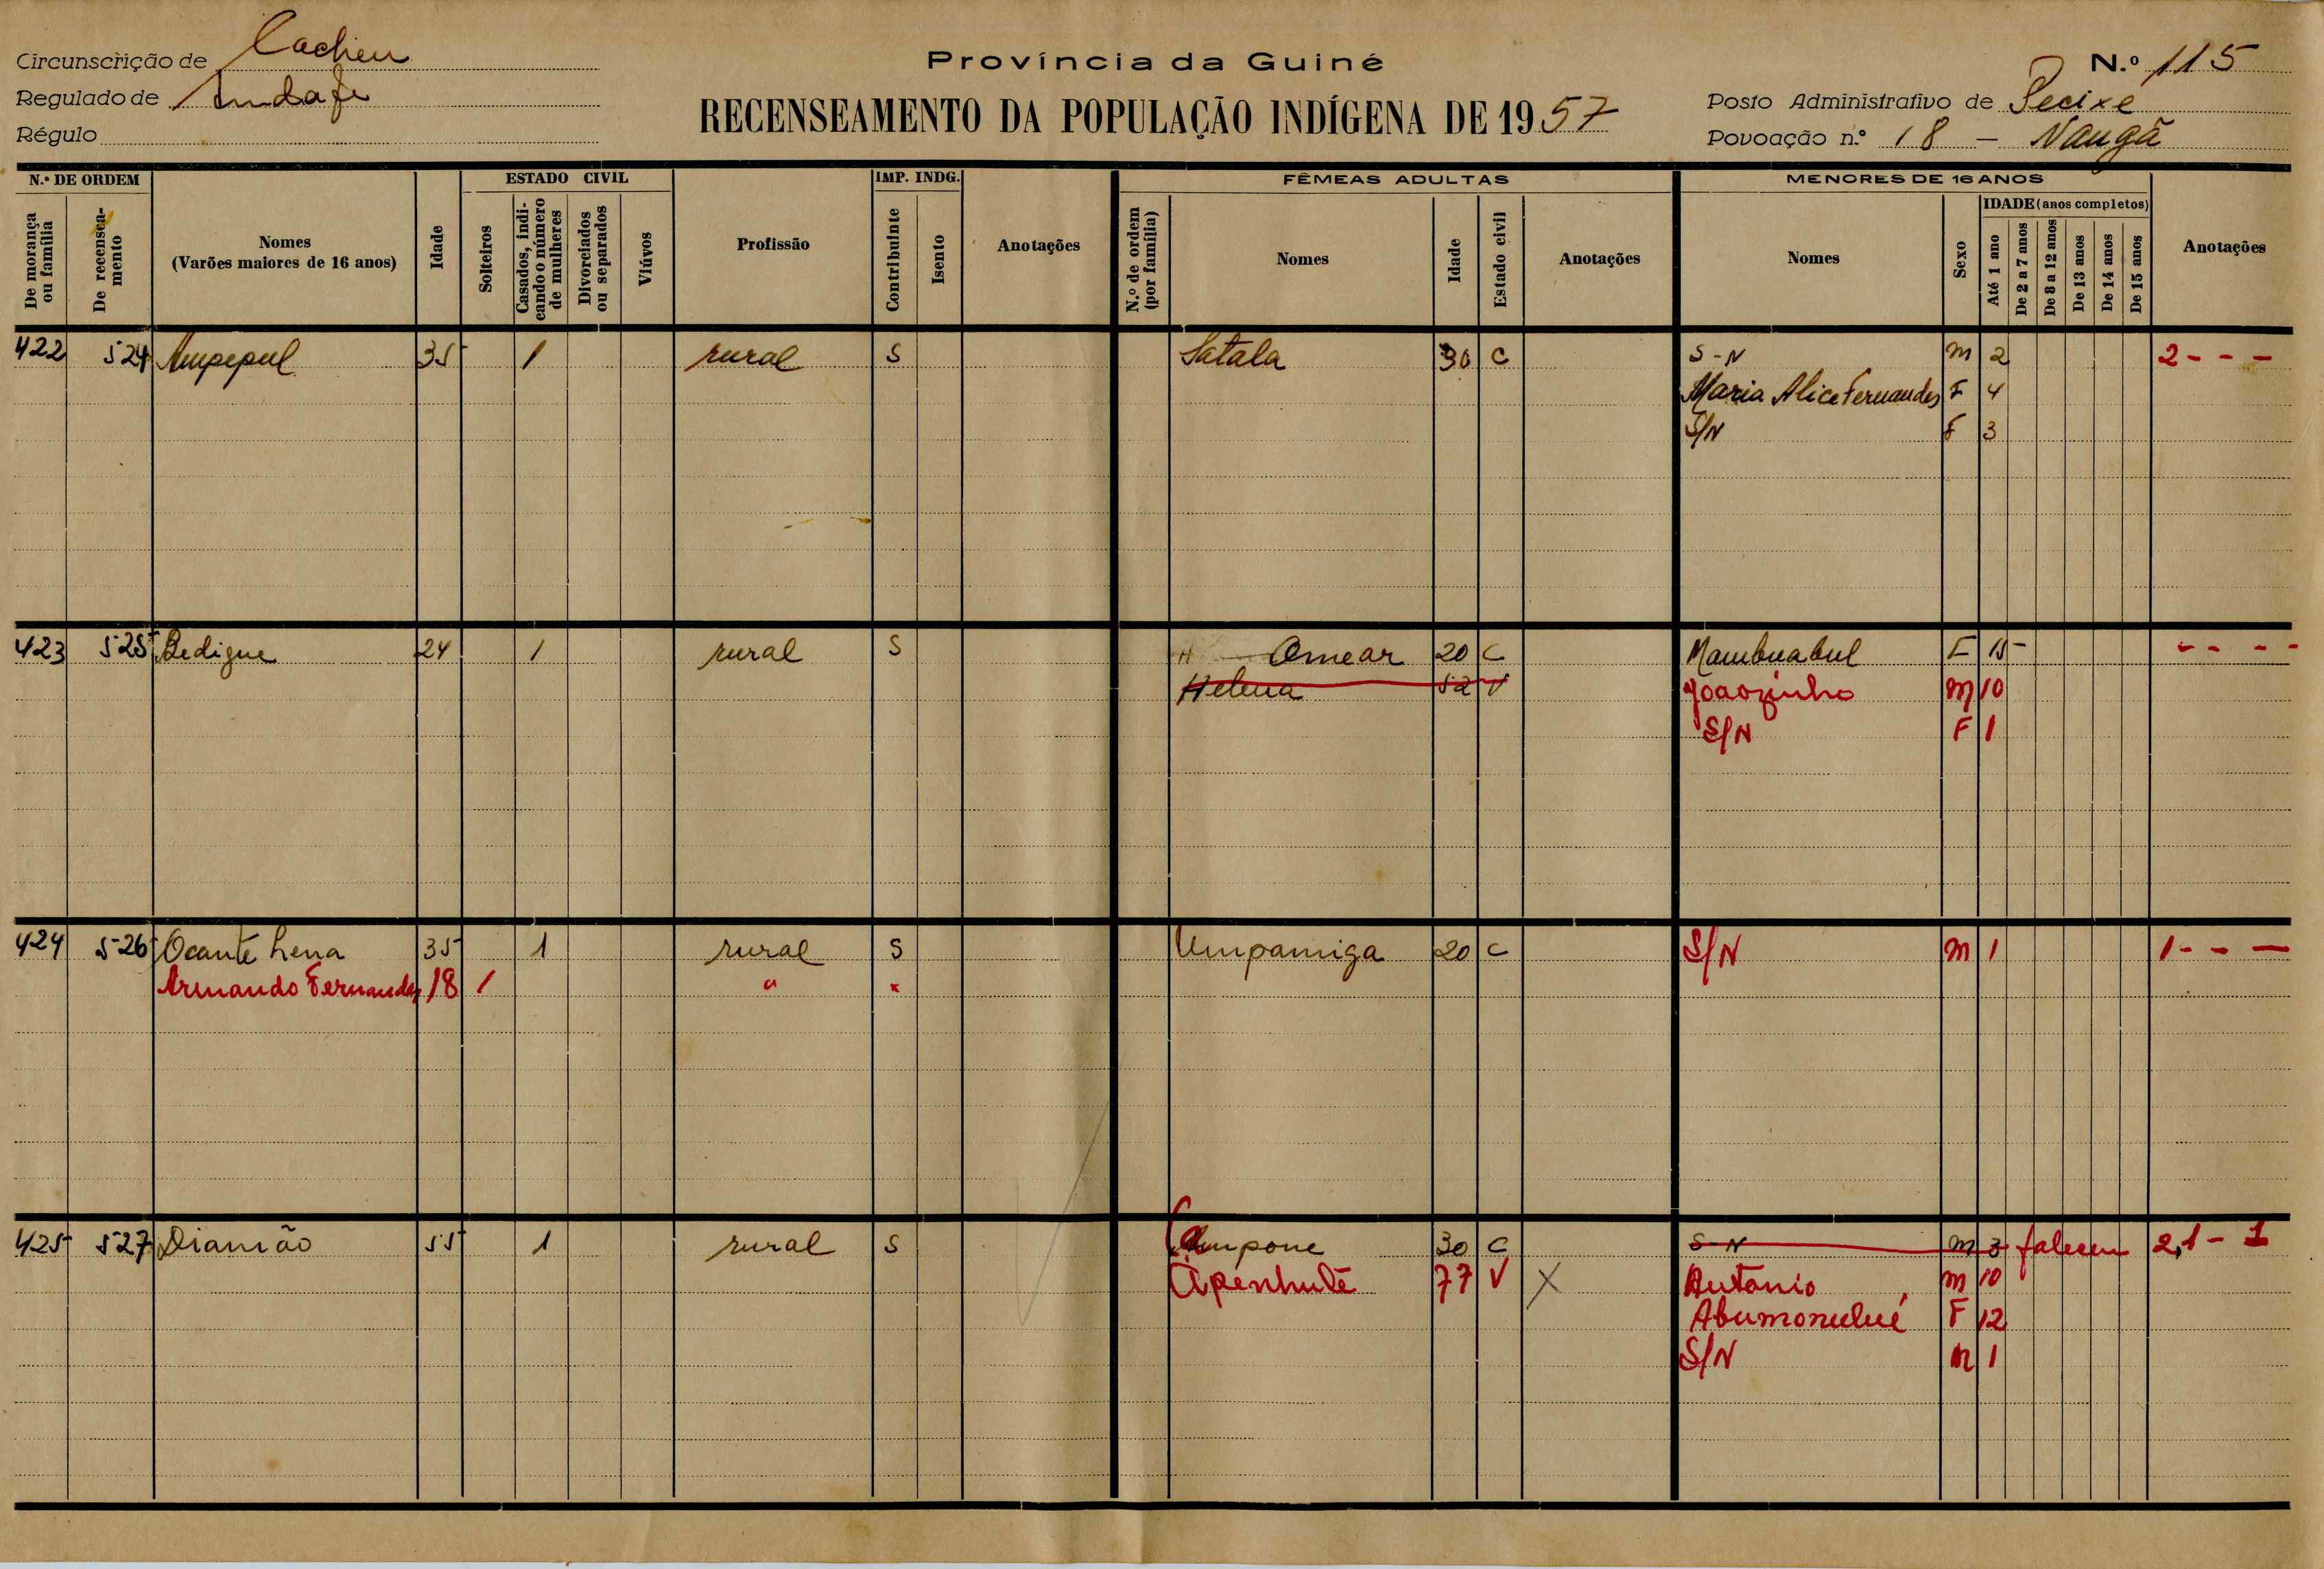 Circunscrição de Cacheu
Regulado de
Régulo
Província da Guiné
RECENSEAMENTO DA POPULAÇÃO INDÍGENA DE 1957
N.º 115
Posto Administrativo de Pecixe
Povoação n.º 18 — Nangã
N.º DE ORDEM
De morança ou família
De recenseamento
Nomes
(Varões maiores de 16 anos)
Idade
ESTADO CIVIL
Solteiros
Casados, indicando o número de mulheres
Divorciados ou separados
Viúvos
Profissão
IMP. INDG.
Contribuinte
Isento
Anotações
FÊMEAS ADULTAS
N.º de ordem (por família)
Nomes
Idade
Estado civil
Anotações
MENORES DE 16 ANOS
Nomes
Sexo
IDADE (anos completos)
Até 1 ano
De 2 a 7 anos
De 8 a 12 anos
De 13 anos
De 14 anos
De 15 anos
Anotações
422 524 Ampepul 35 1 rural S Satala 30 C S-N M 2 2 - - -
Maria Alice Fernandes F 4
S/N F 3
423 525 Bedigue 24 1 rural S Omear 20 C Mambuabul F 15 - - - -
Helena 52 V Joaozinho M 10
S/N F 1
424 526 Ocante Lena 35 1 rural S Umpamiga 20 C S/N M 1 1 - - -
Armando Fernandes 18 1 " "
425 527 Diamão 55 1 rural S Ampone 30 C S-N M 3 faleceu 2,1 - 1
Apenhutê 77 V X António M 10
F 12
S/N M 1